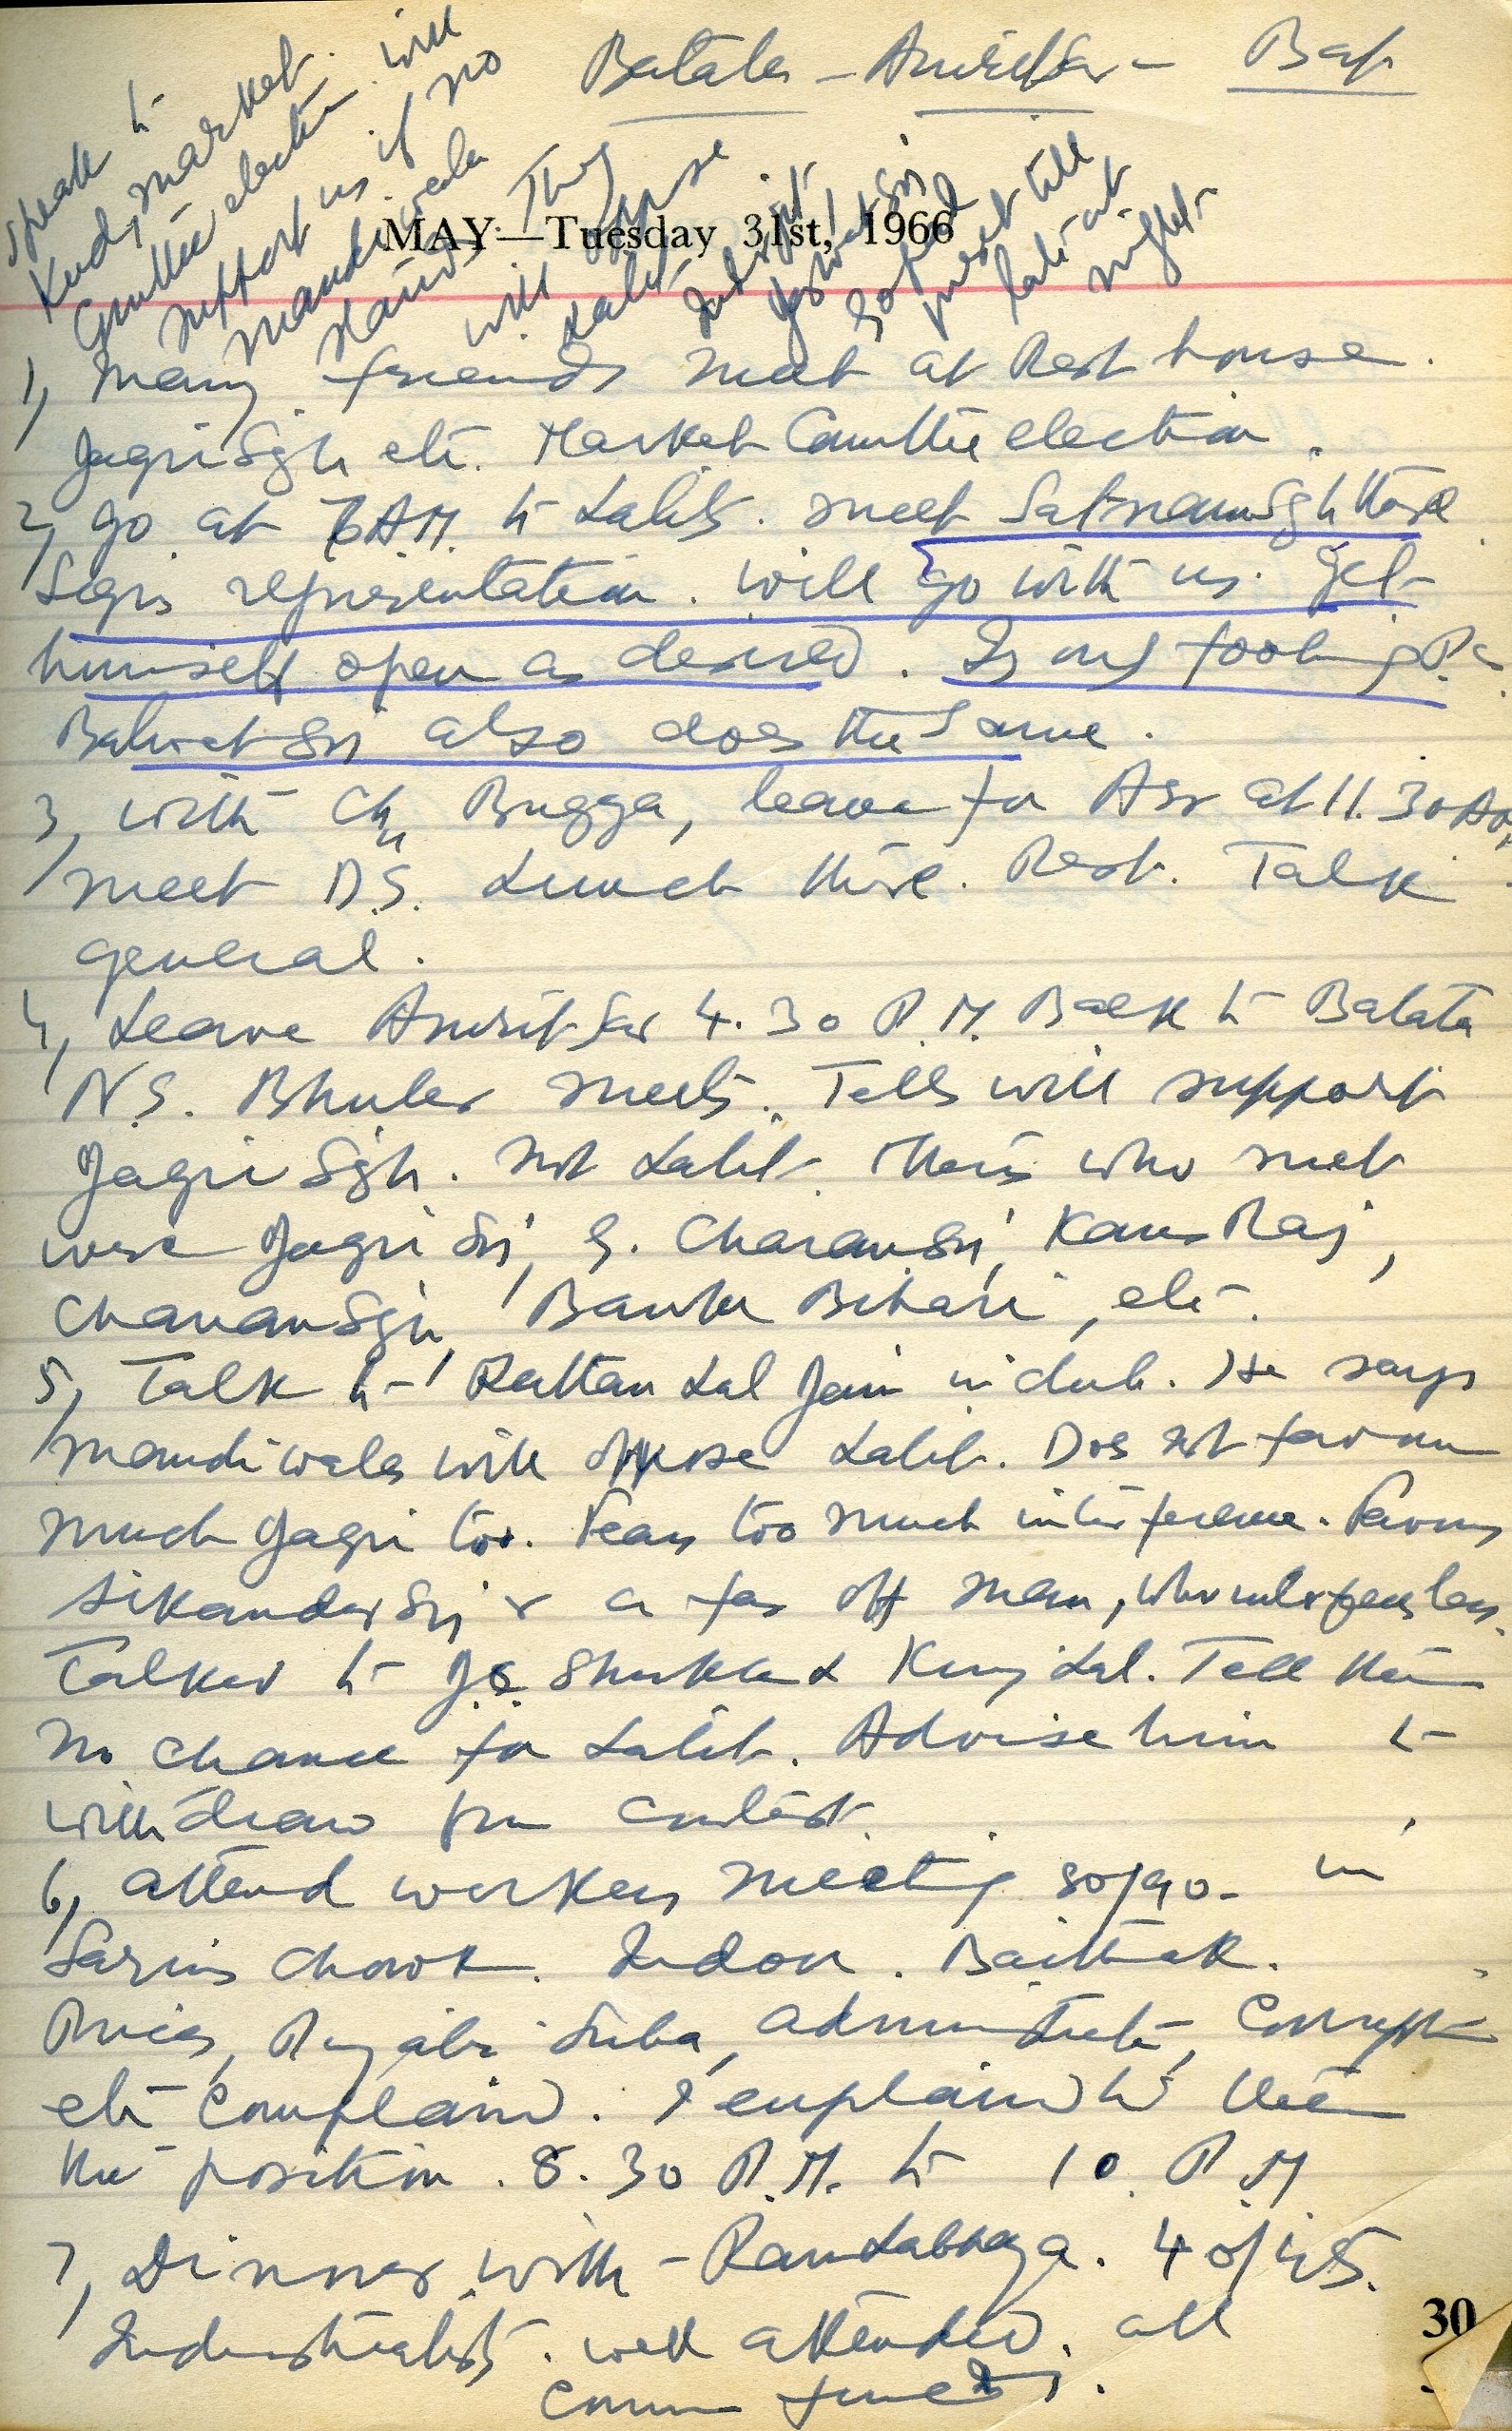 Batala - Amritsar - Back
speak to
market
Committee election will
support us if no
They
will oppose
Lalit
present till
late at
night
MAY—Tuesday 31st, 1966
1, Many friends meet at Rest house.
Jagri Sgh etc. Market Committee election.
2, go at 8 A.M. to Lalit's. meet Satnam Sgh there
representation. will go with us. gets
himself open as desired. fooling
Balwant Sri also does the same.
3, with Ch Bugga, leave for Asr at 11.30 AM
meet D.S. Lunch there. Rest. Talk
general.
4, Leave Amritsar 4.30 P.M. Back to Batala
N.S. Bhuler meets. Tells will support
Jagri Sgh. not Lalit. Those who met
were Jagri Sri, S. Charan Sri, Kans Raj,
Chanan Sgh, Banke Behari, etc.
5, Talk to Rattan Lal Jain in club. He says
mandiwalas will oppose Lalit. Does not favour
much Jagri too. Fears too much interference. Favours
Sikander Sri & a far off man, who interferes less.
Talked to J.S. Shukla & Kunj Lal. Tell them
no chance for Lalit. Advise him to
withdraw from contest.
6, attend workers meeting 80/90 - in
Sarins Chowk. Indoor. Baithak.
Prices, Punjabi Suba, administration, Corruption
etc complained. I explained to them
the position. 8.30 P.M. to 10 P.M
7, Dinner with - Ram Labhaya. 40/45.
Industrialists. well attended. all
30